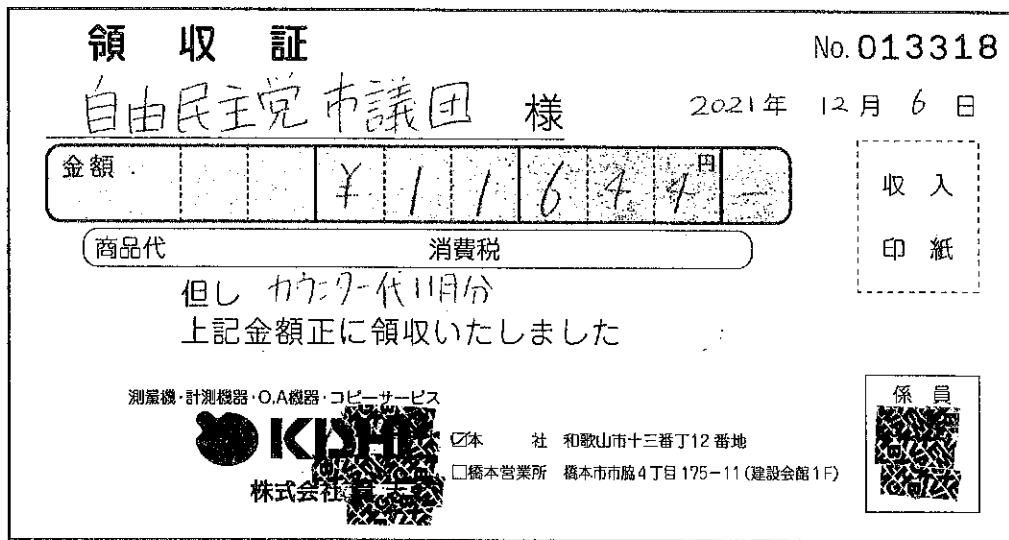 領収証
No.013318
自由民主党市議団 様
2021年 12月 6日
金額 ¥11644円-
収入
印紙
商品代 消費税
但し カウンター代11月分
上記金額正に領収いたしました
測量機・計測機器・O.A機器・コピーサービス
係員
KISHI
☑本 社 和歌山市十三番丁12番地
□橋本営業所 橋本市市脇4丁目175-11(建設会館1F)
株式会社